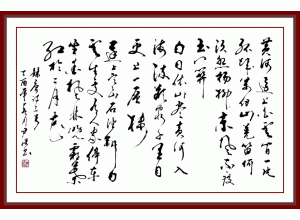 黄河远上白云间一片
孤城万仞山羌笛何
须怨杨柳春风不度
玉门关
白日依山尽黄河入
海流欲穷千里目
更上一层楼
远上寒山石径斜白
云生处有人家停车
坐爱枫林晚霜叶
红于二月花
唐诗三首
丁酉年